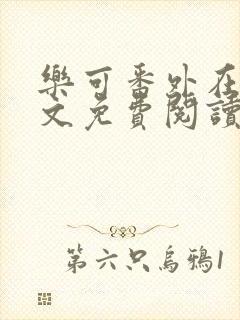 樂可番外在
文免費閱讀
第六只烏鴉1